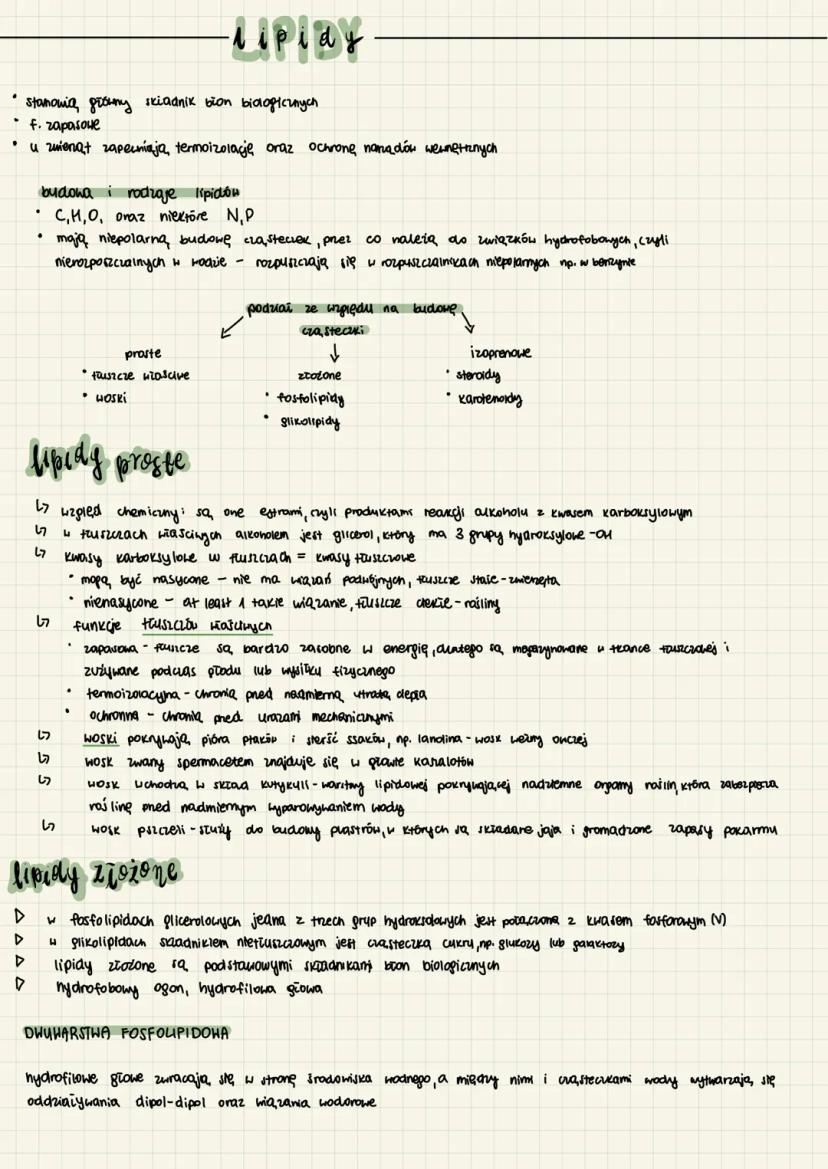 lipidy
• stanowią główny składnik błon biologicznych
• f. zapasowe
• u zwierząt zapewniają termoizolację oraz ochronę narządów wewnętrznych
budowa i rodzaje lipidów
• C,H,O, oraz niektóre N,P
• mają niepolarną budowę cząsteczek, przez co należą do związków hydrofobowych, czyli
nierozpuszczalnych w wodzie – rozpuszczają się w rozpuszczalnikach niepolarnych np. w benzynie
podział ze względu na budowę
cząsteczki
proste
• tłuszcze właściwe
• woski
złożone
• fosfolipidy
• glikolipidy
izoprenowe
• steroidy
• karotenoidy
lipidy proste
↳ wzgląd chemiczny: są one estrami, czyli produktami reakcji alkoholu z kwasem karboksylowym
↳ w tłuszczach właściwych alkoholem jest glicerol, który ma 3 grupy hydroksylowe -OH
↳ kwasy karboksylowe w tłuszczach = kwasy tłuszczowe
• mogą być nasycone – nie ma wiązań podwójnych, tłuszcze stałe - zwierzęta
• nienasycone – at least 1 takie wiązanie, tłuszcze ciekłe - rośliny
↳ funkcje tłuszczów właściwych
• zapasowa - tłuszcze są bardzo zasobne w energię, dlatego są magazynowane w tkance tłuszczowej i
zużywane podczas głodu lub wysiłku fizycznego
• termoizolacyjna - chronią przed nadmierną utratą ciepła
• ochronna – chronią przed urazami mechanicznymi
↳ woski pokrywają pióra ptaków i sierść ssaków, np. lanolina - wosk wełny owczej
↳ wosk zwany spermacetem znajduje się w głowie kaszalotów
↳ wosk wchodzą w skład kutykuli - warstwy lipidowej pokrywającej nadziemne organy roślin, która zabezpiecza
roślinę przed nadmiernym wyparowywaniem wody
↳ wosk pszczeli - służy do budowy plastrów, w których są składane jaja i gromadzone zapasy pokarmu
lipidy złożone
▷ w fosfolipidach glicerolowych jedna z trzech grup hydroksylowych jest połączona z kwasem fosforowym (V)
▷ w glikolipidach składnikiem nietłuszczowym jest cząsteczka cukru, np. glukozy lub galaktozy
▷ lipidy złożone są podstawowymi składnikami błon biologicznych
▷ hydrofobowy ogon, hydrofilowa głowa
DWUWARSTWA FOSFOLIPIDOWA
hydrofilowe głowe zwracają się w stronę środowiska wodnego, a między nimi i cząsteczkami wody wytwarzają się
oddziaływania dipol-dipol oraz wiązania wodorowe